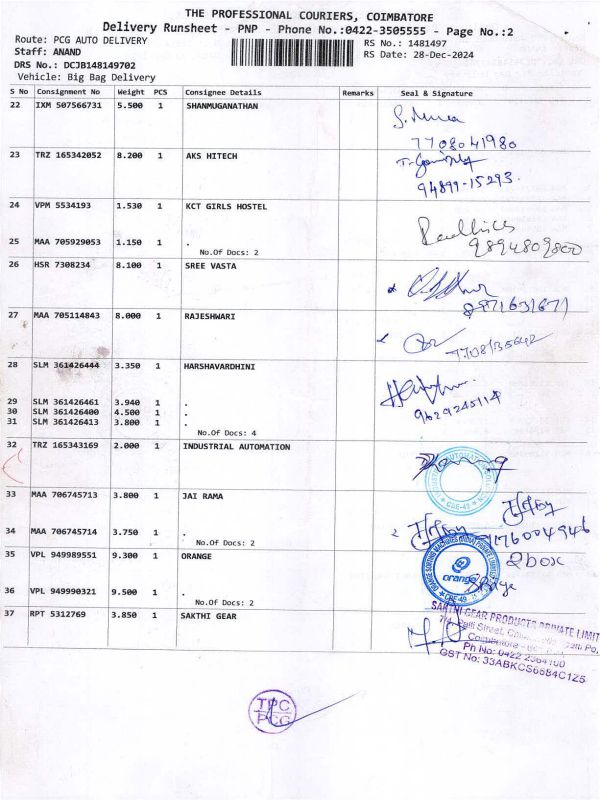 THE PROFESSIONAL COURIERS, COIMBATORE
Delivery Runsheet - PNP - Phone No.:0422-3505555 - Page No.:2
Route: PCG AUTO DELIVERY RS No.: 1481497
Staff: ANAND RS Date: 28-Dec-2024
DRS No.: DCJB148149702
Vehicle: Big Bag Delivery
S No Consignment No Weight PCS Consignee Details Remarks Seal & Signature
22 IXM 507566731 5.500 1 SHANMUGANATHAN
7708041980
23 TRZ 165342052 8.200 1 AKS HITECH
94899-15293.
24 VPM 5534193 1.530 1 KCT GIRLS HOSTEL
25 MAA 705929053 1.150 1 .
9894809800
No.Of Docs: 2
26 HSR 7308234 8.100 1 SREE VASTA
8971631671
27 MAA 705114843 8.000 1 RAJESHWARI
7708135642
28 SLM 361426444 3.350 1 HARSHAVARDHINI
29 SLM 361426461 3.940 1 .
9629245114
30 SLM 361426400 4.500 1 .
31 SLM 361426413 3.800 1 .
No.Of Docs: 4
32 TRZ 165343169 2.000 1 INDUSTRIAL AUTOMATION
CBE-49
33 MAA 706745713 3.800 1 JAI RAMA
34 MAA 706745714 3.750 1 .
9176004946
No.Of Docs: 2
35 VPL 949989551 9.300 1 ORANGE
2 box
ORANGE SORTING MACHINES (INDIA) PRIVATE LIMITED
orange
CBE-49
36 VPL 949990321 9.500 1 .
No.Of Docs: 2
37 RPT 5312769 3.850 1 SAKTHI GEAR
SAKTHI GEAR PRODUCTS PRIVATE LIMIT
Street,
Coimbatore -
Ph No: 0422
GST No: 33ABKCS6684C1Z5
TPC
PCG